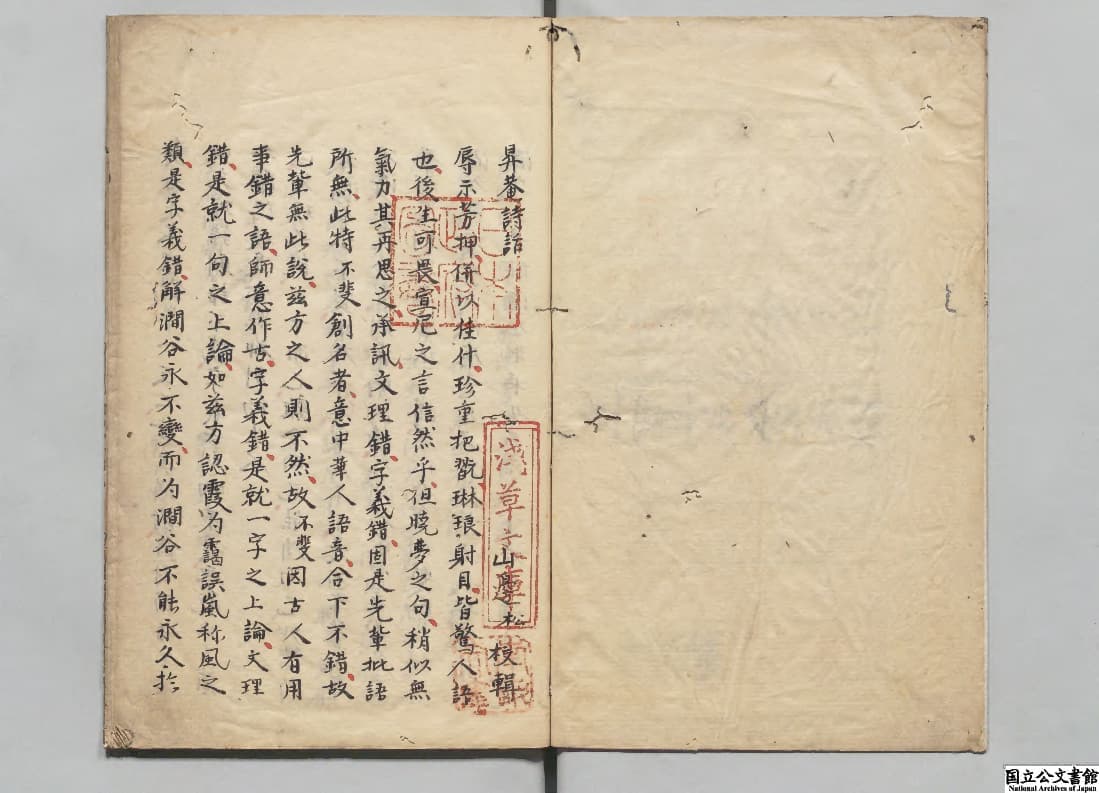 昇菴詩話
山邊松 校輯
辱示芳押併以佳什珍重把翫琳琅射目皆驚人語
也後生可畏宣尼之言信然乎但曉夢之句稍似無
氣力其再思之承訊文理錯字義錯固是先輩批語
所無此特不斐創名者意中華人語音合下不錯故
先輩無此說茲方之人則不然故不斐因古人有用
事錯之語師意作古字義錯是就一字之上論文理
錯是就一句之上論如茲方認霞为靄誤嵐称風之
類是字義錯解澗谷永不變而为澗谷不能永久於
淺草文庫
国立公文書館
National Archives of Japan